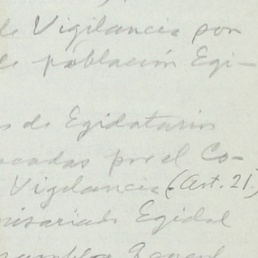 de Vigilancia por
de población Egi-
s de Egidatarios
ocadas por el Co-
Vigilancia (Art. 21.)
misariado Egidal